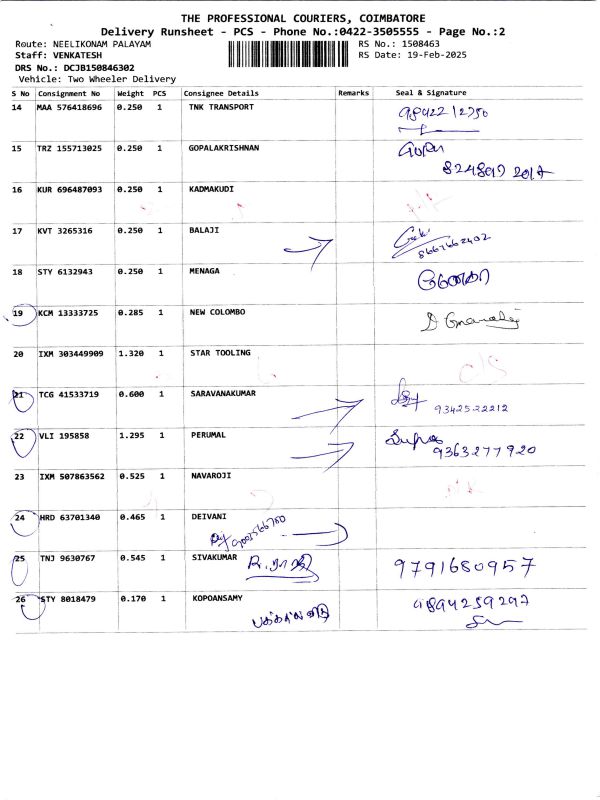 THE PROFESSIONAL COURIERS, COIMBATORE
Delivery Runsheet - PCS - Phone No.:0422-3505555 - Page No.:2
Route: NEELIKONAM PALAYAM RS No.: 1508463
Staff: VENKATESH RS Date: 19-Feb-2025
DRS No.: DCJB150846302
Vehicle: Two Wheeler Delivery
S No Consignment No Weight PCS Consignee Details Remarks Seal & Signature
14 MAA 576418696 0.250 1 TNK TRANSPORT
15 TRZ 155713025 0.250 1 GOPALAKRISHNAN
16 KUR 696487093 0.250 1 KADMAKUDI
17 KVT 3265316 0.250 1 BALAJI 8667662402
18 STY 6132943 0.250 1 MENAGA
19 KCM 13333725 0.285 1 NEW COLOMBO
20 IXM 303449909 1.320 1 STAR TOOLING
21 TCG 41533719 0.600 1 SARAVANAKUMAR 9342522212
22 VLI 195858 1.295 1 PERUMAL 9363277920
23 IXM 507863562 0.525 1 NAVAROJI
24 HRD 63701340 0.465 1 DEIVANI
25 TNJ 9630767 0.545 1 SIVAKUMAR 9791680957
26 STY 8018479 0.170 1 KOPOANSAMY 9894259297